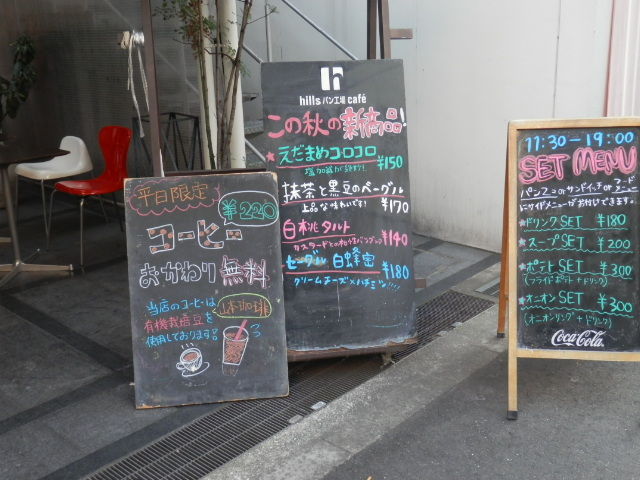 平日限定
¥220
コーヒー
おかわり 無料
当店のコーヒーは
有機栽培豆を
使用しております!
hills パン工場 café
この秋の新商品!
えだまめコロコロ
¥150
抹茶と黒豆のベーグル
上品な味わいです! ¥170
白桃タルト
¥140
ベーグル 白蜂蜜
クリームチーズ×ハチミツ!!!! ¥180
11:30-19:00
SET MENU
パンフコorサンドイッチorフード
にサイドメニューがお付けできます。
★ドリンクSET ¥180
★スープSET ¥200
★ポテトSET ¥300
(フライドポテト+ドリンク)
★オニオンSET ¥300
(オニオンリング+ドリンク)
Coca-Cola